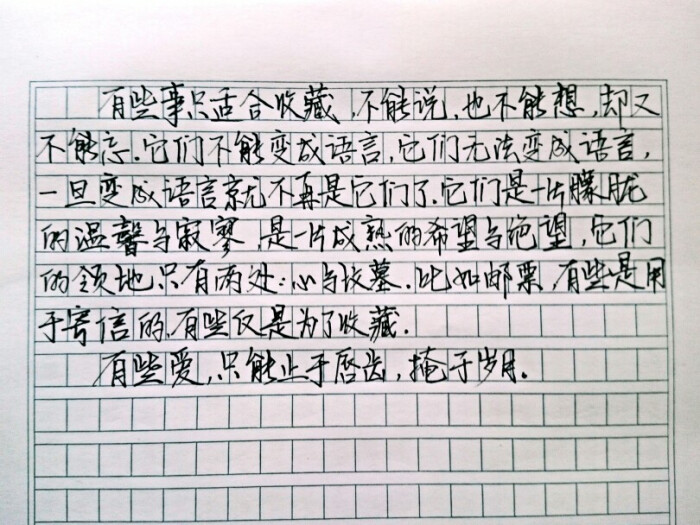 有些事只适合收藏,不能说,也不能想,却又
不能忘.它们不能变成语言,它们无法变成语言,
一旦变成语言就不再是它们了.它们是一片朦胧
的温馨与寂寥,是一片成熟的希望与绝望,它们
的领地只有两处:心与坟墓.比如邮票,有些是用
于寄信的,有些仅是为了收藏.
有些爱,只能止于唇齿,掩于岁月.